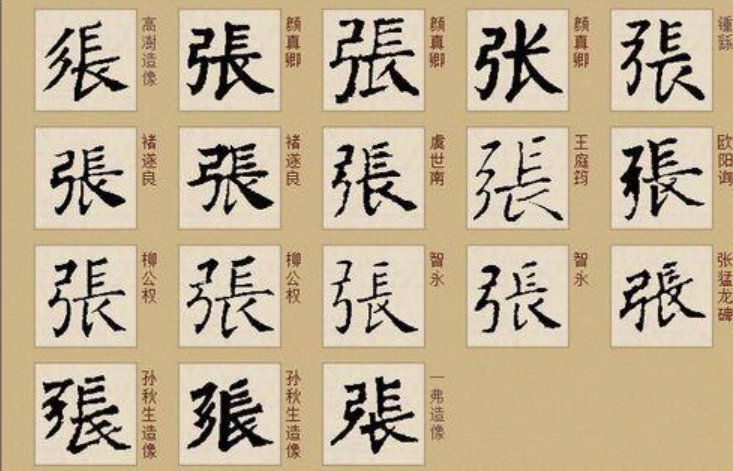 張 高澍造像
張 颜真卿
張 颜真卿
张 颜真卿
張 锺繇
張 褚遂良
張 褚遂良
張 虞世南
張 王庭筠
張 欧阳询
張 柳公权
張 柳公权
張 智永
張 智永
張 张猛龙碑
張 孙秋生造像
張 孙秋生造像
張 一弗造像